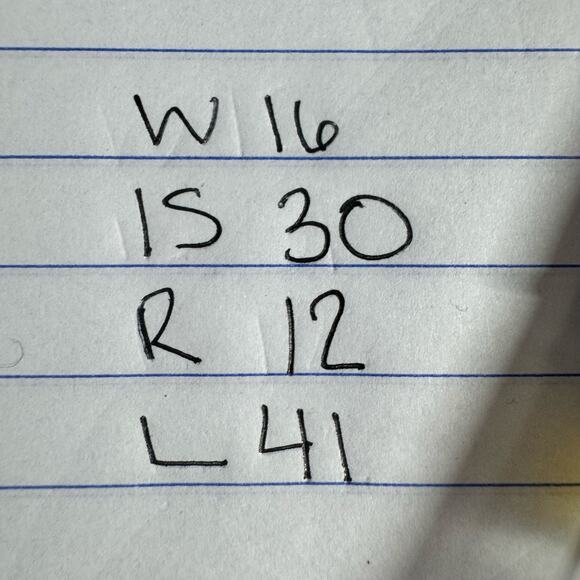 W 16
IS 30
R 12
L 41